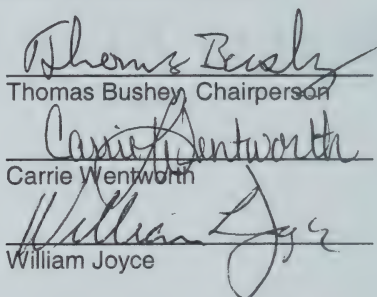 Thomas Bushey
Thomas Bushey, Chairperson
Carrie Wentworth
Carrie Wentworth
William Joyce
William Joyce